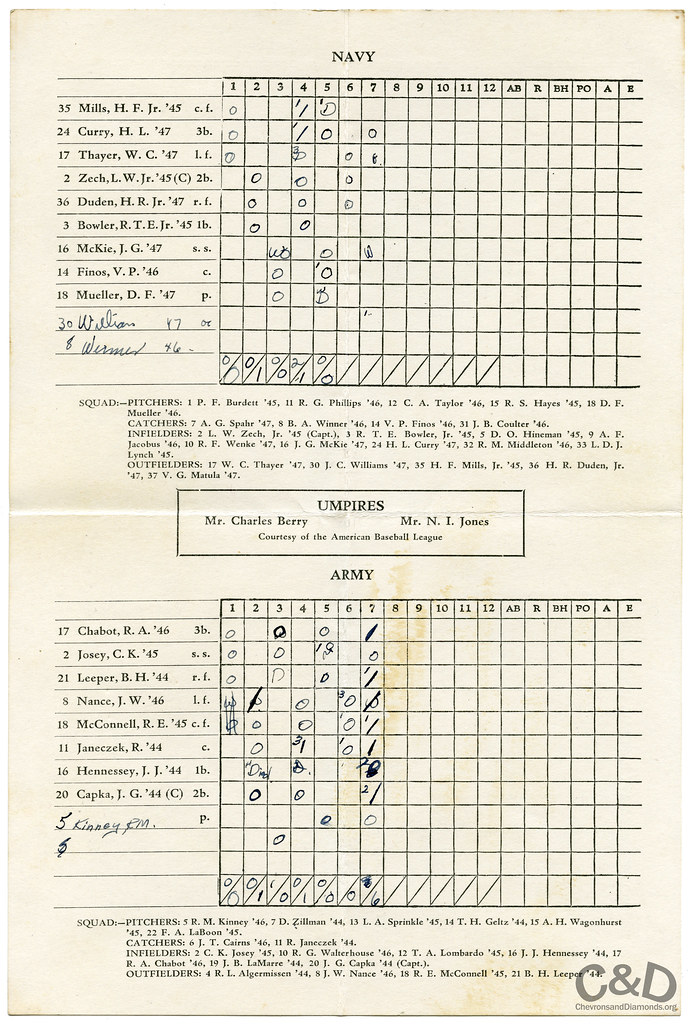 NAVY
1 2 3 4 5 6 7 8 9 10 11 12 AB R BH PO A E
35 Mills, H. F. Jr. '45 c. f.
24 Curry, H. L. '47 3b.
17 Thayer, W. C. '47 l. f.
2 Zech, L. W. Jr. '45 (C) 2b.
36 Duden, H. R. Jr. '47 r. f.
3 Bowler, R. T. E. Jr. '45 1b.
16 McKie, J. G. '47 s. s.
14 Finos, V. P. '46 c.
18 Mueller, D. F. '47 p.
30 William 47
8 46
SQUAD:—PITCHERS: 1 P. F. Burdett '45, 11 R. G. Phillips '46, 12 C. A. Taylor '46, 15 R. S. Hayes '45, 18 D. F.
Mueller '46.
CATCHERS: 7 A. G. Spahr '47, 8 B. A. Winner '46, 14 V. P. Finos '46, 31 J. B. Coulter '46.
INFIELDERS: 2 L. W. Zech, Jr. '45 (Capt.), 3 R. T. E. Bowler, Jr. '45, 5 D. O. Hineman '45, 9 A. F.
Jacobus '46, 10 R. F. Wenke '47, 16 J. G. McKie '47, 24 H. L. Curry '47, 32 R. M. Middleton '46, 33 L. D. J.
Lynch '45.
OUTFIELDERS: 17 W. C. Thayer '47, 30 J. C. Williams '47, 35 H. F. Mills, Jr. '45, 36 H. R. Duden, Jr.
'47, 37 V. G. Matula '47.
UMPIRES
Mr. Charles Berry Mr. N. I. Jones
Courtesy of the American Baseball League
ARMY
1 2 3 4 5 6 7 8 9 10 11 12 AB R BH PO A E
17 Chabot, R. A. '46 3b.
2 Josey, C. K. '45 s. s.
21 Leeper, B. H. '44 r. f.
8 Nance, J. W. '46 l. f.
18 McConnell, R. E. '45 c. f.
11 Janeczek, R. '44 c.
16 Hennessey, J. J. '44 1b.
20 Capka, J. G. '44 (C) 2b.
5 Kinney R.M. p.
SQUAD:—PITCHERS: 5 R. M. Kinney '46, 7 D. Zillman '44, 13 L. A. Sprinkle '45, 14 T. H. Geltz '44, 15 A. H. Wagonhurst
'45, 22 F. A. LaBoon '45.
CATCHERS: 6 J. T. Cairns '46, 11 R. Janeczek '44.
INFIELDERS: 2 C. K. Josey '45, 10 R. G. Walterhouse '46, 12 T. A. Lombardo '45, 16 J. J. Hennessey '44, 17
R. A. Chabot '46, 19 J. B. LaMarre '44, 20 J. G. Capka '44 (Capt.).
OUTFIELDERS: 4 R. L. Algermissen '44, 8 J. W. Nance '46, 18 R. E. McConnell '45, 21 B. H. Leeper '44.
C&D
ChevronsandDiamonds.org